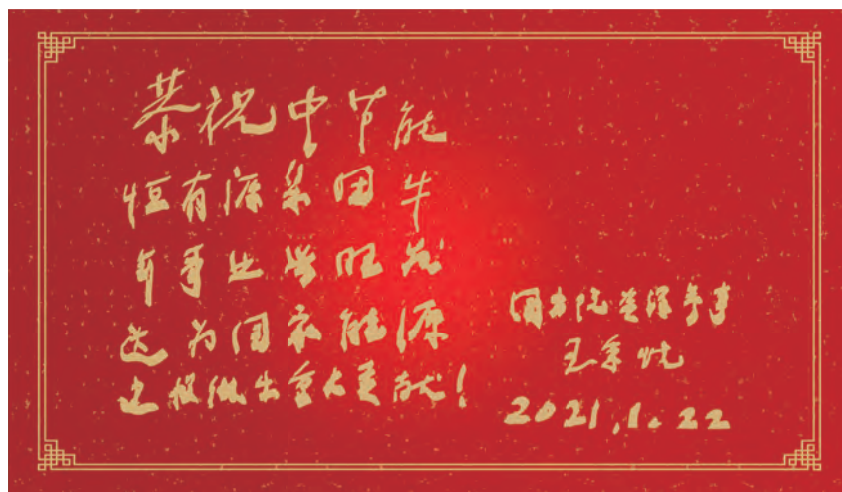 恭祝中节能
恒有源集团牛
年事业兴旺发
达为国家能源
建设做出重大贡献！
国务院参事
王秉忱
2021.1.22